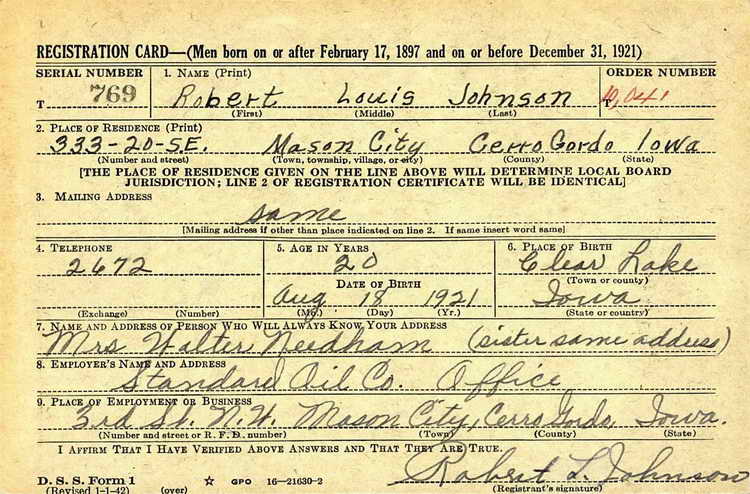 REGISTRATION CARD—(Men born on or after February 17, 1897 and on or before December 31, 1921)
SERIAL NUMBER 1. NAME (Print) ORDER NUMBER
T 769 Robert Louis Johnson T 10,041
(First) (Middle) (Last)
2. PLACE OF RESIDENCE (Print)
333-20-S.E. Mason City Cerro Gordo Iowa
(Number and street) (Town, township, village, or city) (County) (State)
[THE PLACE OF RESIDENCE GIVEN ON THE LINE ABOVE WILL DETERMINE LOCAL BOARD
JURISDICTION; LINE 2 OF REGISTRATION CERTIFICATE WILL BE IDENTICAL]
3. MAILING ADDRESS
same
[Mailing address if other than place indicated on line 2. If same insert word same]
4. TELEPHONE 5. AGE IN YEARS 6. PLACE OF BIRTH
2672 20 Clear Lake
DATE OF BIRTH (Town or county)
Aug 18 1921 Iowa
(Exchange) (Number) (Mo.) (Day) (Yr.) (State or country)
7. NAME AND ADDRESS OF PERSON WHO WILL ALWAYS KNOW YOUR ADDRESS
Mrs Walter Needham (sister same address)
8. EMPLOYER'S NAME AND ADDRESS
Standard Oil Co. Office
9. PLACE OF EMPLOYMENT OR BUSINESS
3rd St. N.W. Mason City, Cerro Gordo, Iowa.
(Number and street or R. F. D. number) (Town) (County) (State)
I AFFIRM THAT I HAVE VERIFIED ABOVE ANSWERS AND THAT THEY ARE TRUE.
Robert L. Johnson
D. S. S. Form 1 ☆ GPO 16—21630-2
(Revised 1-1-42) (over) (Registrant's signature)